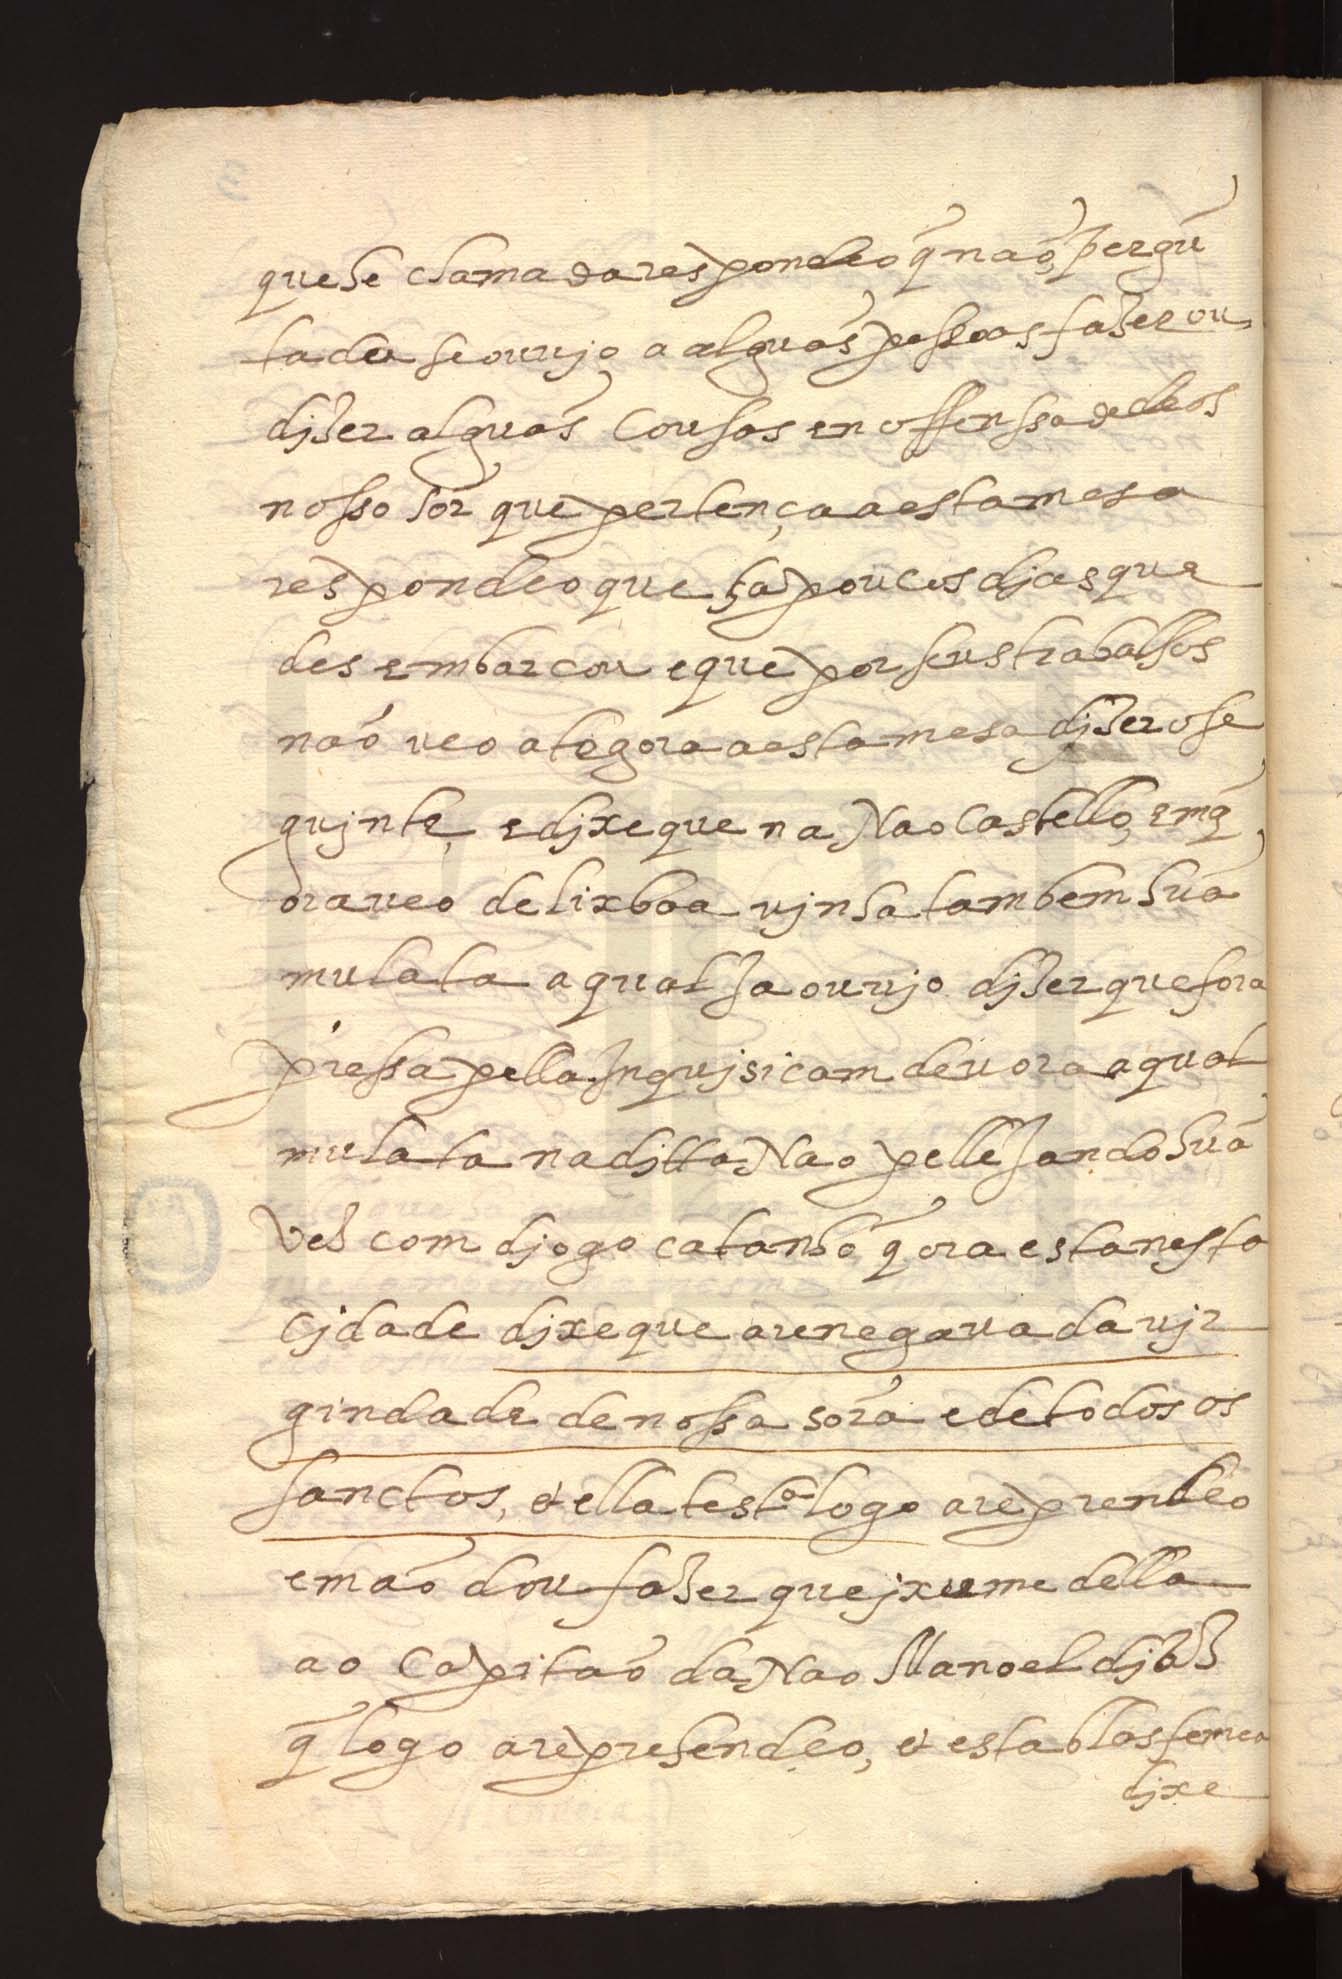 que he chamada respondeo q̃ naõ, pergũ
tada se ouvjo a alguãs pessoas fazer ou
djzer alguãs cousas en offenssa de deos
nosso sõr que pertença a esta mesa
respondeo que ha poucos djas que
desembarcou e que por seus trabalhos
naõ veo ategora a esta mesa djzer o se
gujnte, e djxe que na Nao Castello, em q̃
ora veo de lixboa vjnha tambem huã
mulata a qual Ja ouvjo djzer que fora
pressa pella Inqujsicam devora a qual
mulata na djtta Nao pelleJando huã
vez com djogo catanho q̃ ora esta nesta
Cjdade djxe que arenegava da vjr
gindade de nossa sõra e de todos os
sanctos, e ella testª logo a reprendeo
e maõdou fazer quejxume della
ao Capitaõ da Nao Manoel djaz
q̃ logo a reprehendeo, e esta blasfemea
djxe